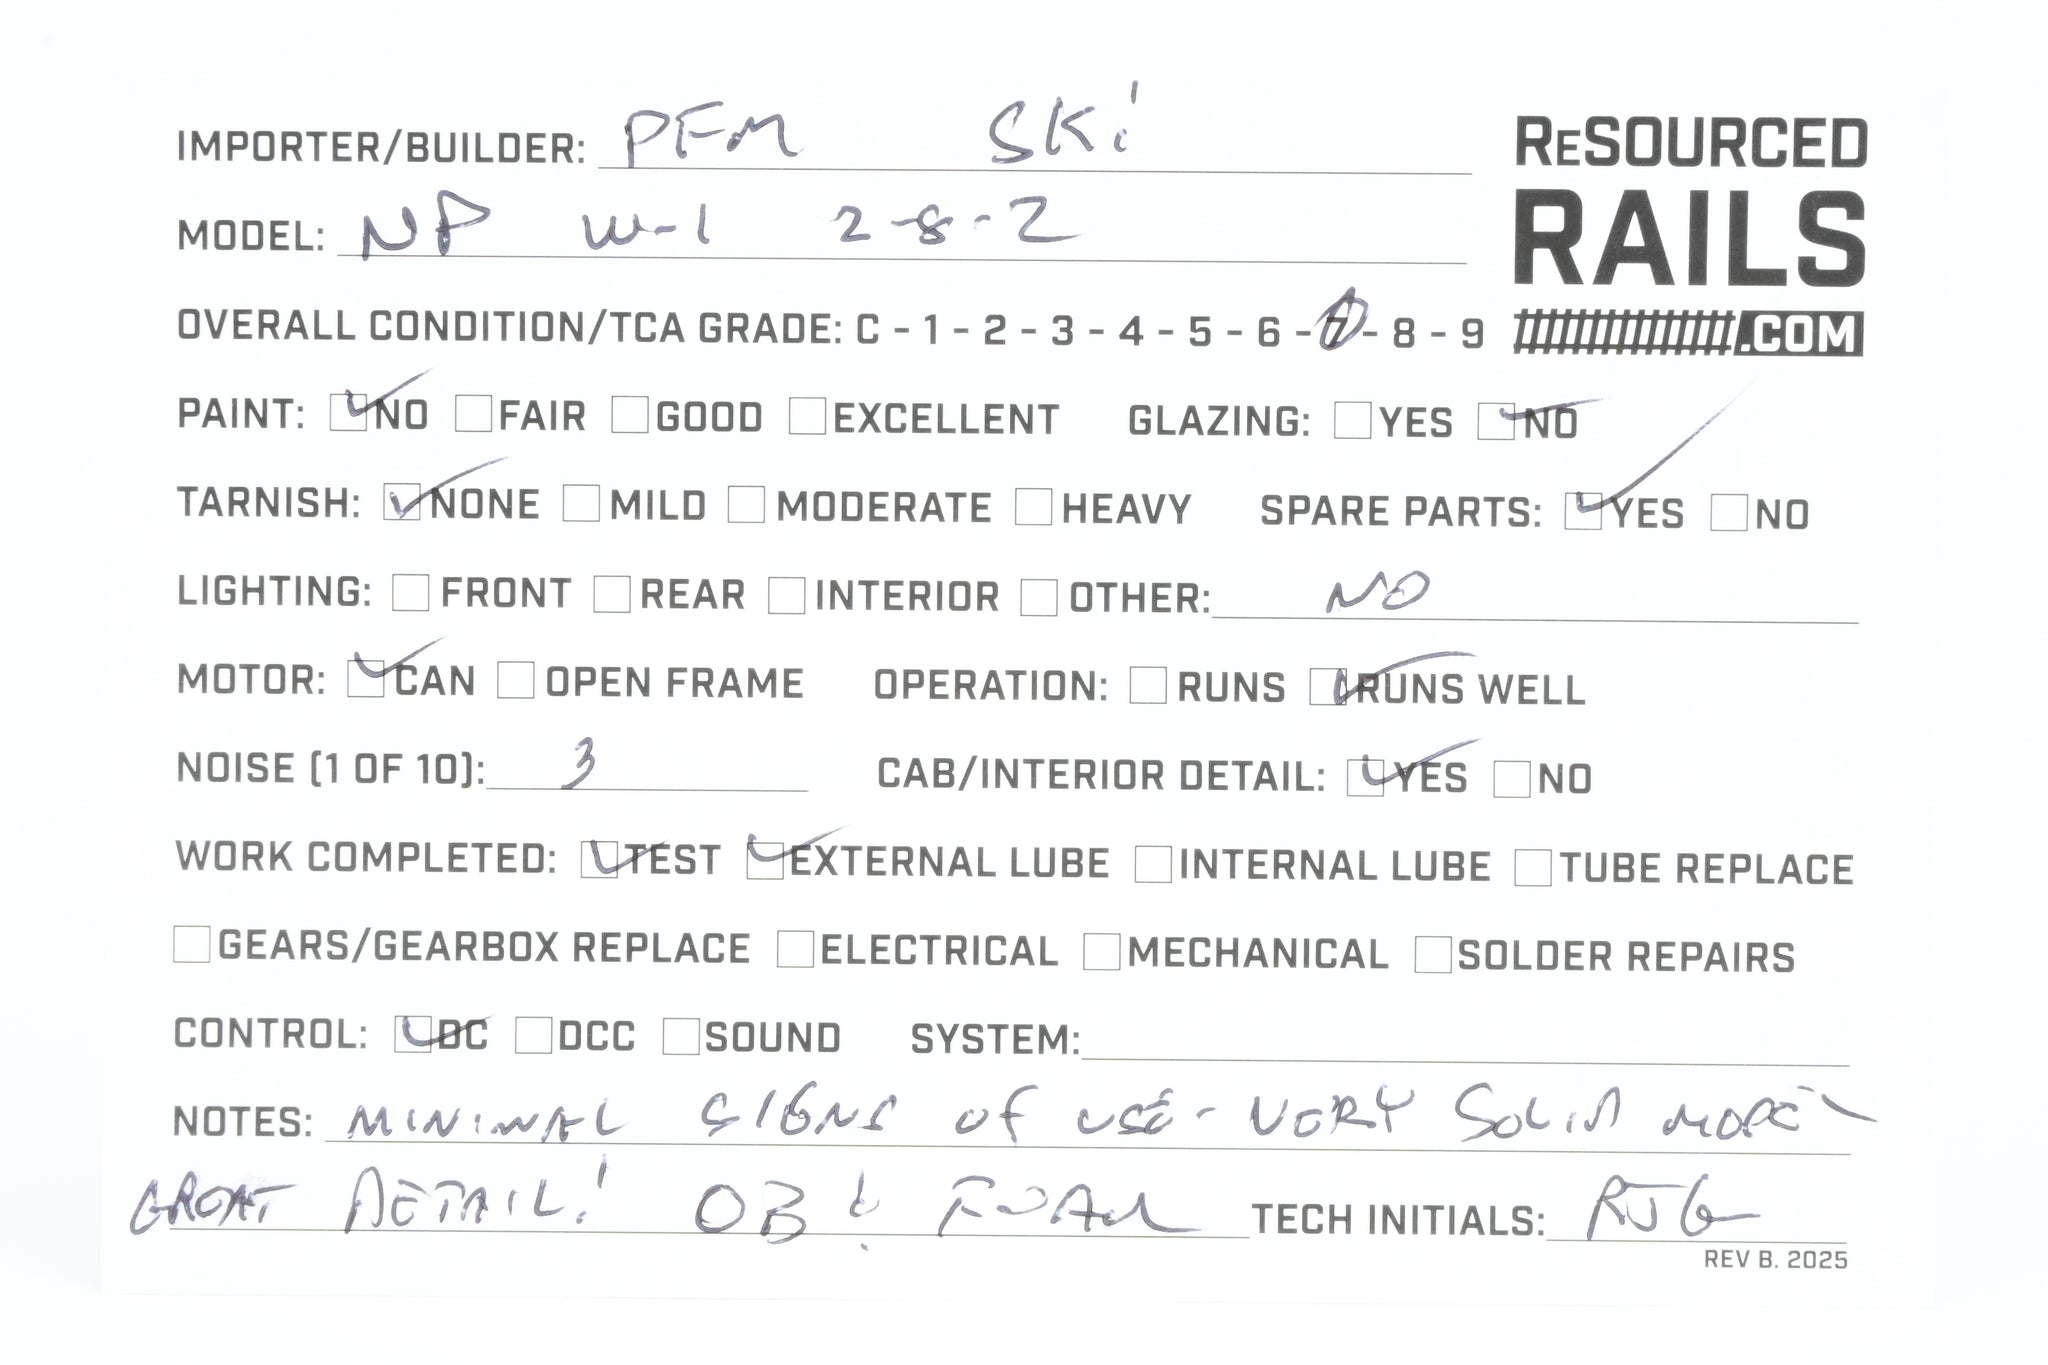 IMPORTER/BUILDER: PFM SKi
RESOURCED
RAILS
.COM
MODEL: NP W-1 2-8-2
OVERALL CONDITION/TCA GRADE: C - 1 - 2 - 3 - 4 - 5 - 6 - 7 - 8 - 9
PAINT: NO FAIR GOOD EXCELLENT GLAZING: YES NO
TARNISH: NONE MILD MODERATE HEAVY SPARE PARTS: YES NO
LIGHTING: FRONT REAR INTERIOR OTHER: NO
MOTOR: CAN OPEN FRAME OPERATION: RUNS RUNS WELL
NOISE (1 OF 10): 3 CAB/INTERIOR DETAIL: YES NO
WORK COMPLETED: TEST EXTERNAL LUBE INTERNAL LUBE TUBE REPLACE
GEARS/GEARBOX REPLACE ELECTRICAL MECHANICAL SOLDER REPAIRS
CONTROL: DC DCC SOUND SYSTEM:
NOTES: MINIMAL SIGNS OF USE - VERY SOLID MODEL
GREAT DETAIL! OB & FOAM TECH INITIALS: RJG
REV B. 2025